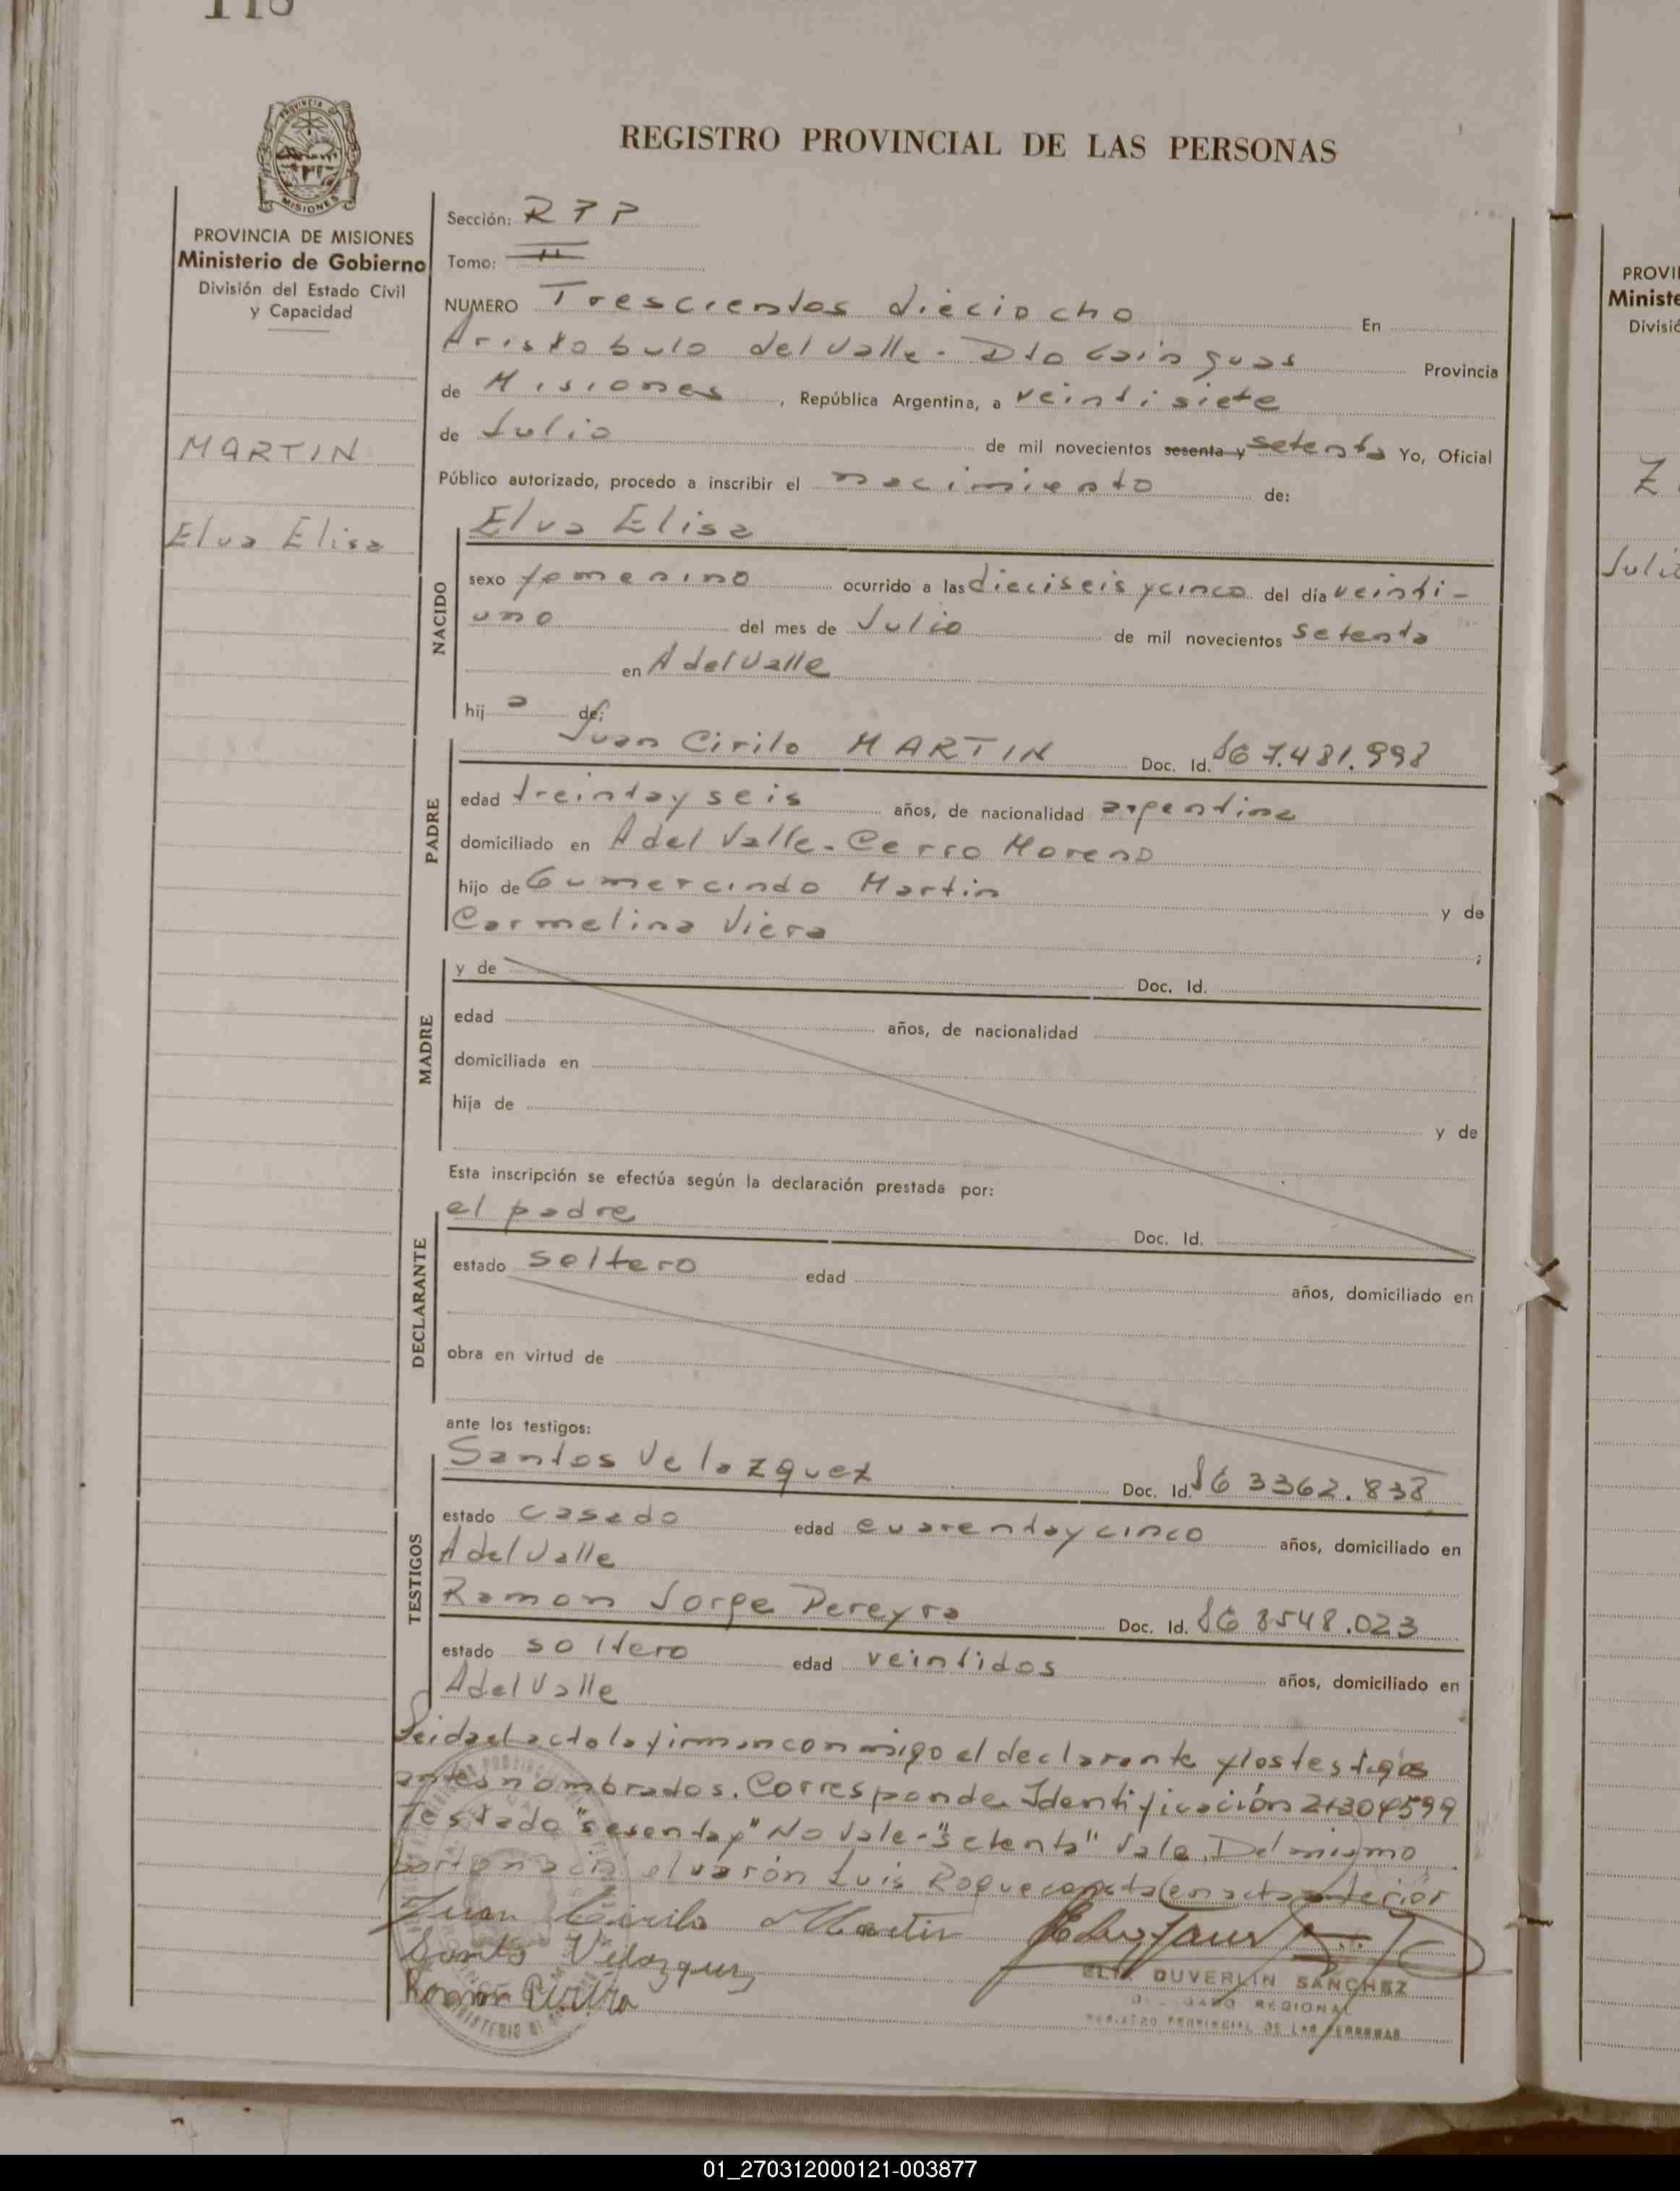 118
REGISTRO PROVINCIAL DE LAS PERSONAS
PROVINCIA DE MISIONES
Ministerio de Gobierno
División del Estado Civil
y Capacidad
MARTIN
Elva Elisa
Sección: R P P
Tomo: II
NUMERO Trescientos dieciocho En
Aristobulo del Valle - Dto Cainguas Provincia
de Misiones, República Argentina, a veintisiete
de Julio de mil novecientos sesenta y setenta Yo, Oficial
Público autorizado, procedo a inscribir el nacimiento de:
NACIDO
Elva Elisa
sexo femenino ocurrido a las dieciseis y cinco del día veinti-
uno del mes de Julio de mil novecientos setenta
en A del Valle
hij a de:
PADRE
Juan Cirilo MARTIN Doc. Id. 7.481.998
edad treinta y seis años, de nacionalidad argentina
domiciliado en A del Valle - Cerro Moreno
hijo de Gumercindo Martin y de
Carmelina Viera ;
MADRE
y de Doc. Id.
edad años, de nacionalidad
domiciliada en
hija de y de
Esta inscripción se efectúa según la declaración prestada por:
DECLARANTE
el padre Doc. Id.
estado soltero edad años, domiciliado en
obra en virtud de
ante los testigos:
TESTIGOS
Santos Velazquez Doc. Id. 3362.838
estado casado edad cuarenta y cinco años, domiciliado en
A del Valle
Ramon Jorge Pereyra Doc. Id. 8548.023
estado soltero edad veintidos años, domiciliado en
A del Valle
Leida el acta la firman conmigo el declarante y los testigos
antes nombrados. Corresponde Identificación 21304599
Testado "sesenta y" No Vale - "setenta" Vale. Del mismo
parto nacio el varón Luis Roque consta en acta anterior
Juan Cirilo Martin
Santos Velazquez
Ramon Pereyra
DUVERLIN SANCHEZ
REGIONAL
REGISTRO PROVINCIAL DE LAS PERSONAS
PROVI
Ministe
Divisió
Juli
01_270312000121-003877